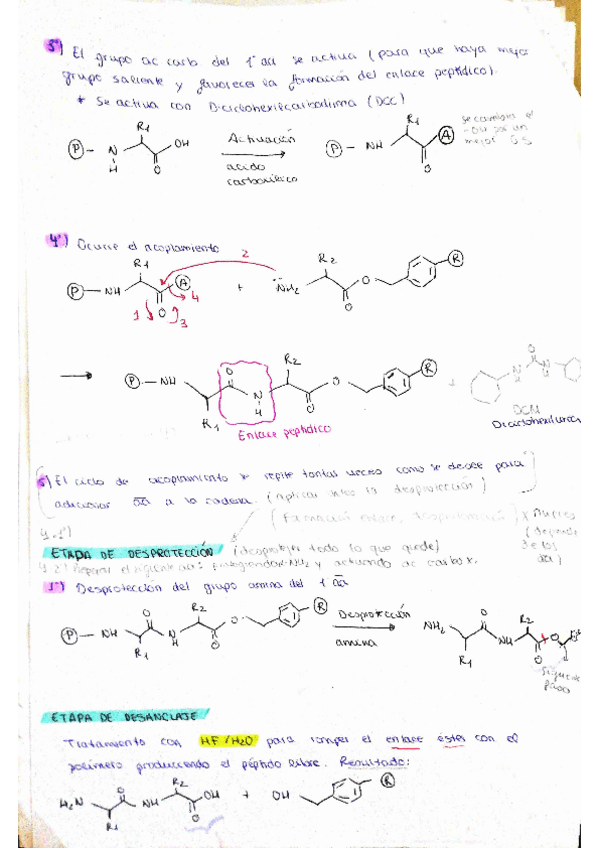 3º) El grupo ac carb. del 1º aa se activa (para que haya mejor
grupo saliente y favorecer la formación del enlace peptídico).
* Se activa con Diciclohexilcarbodiimida (DCC)
P - N H R1 O OH
Activación
ácido
carboxílico
P - NH R1 O A
se cambia el
-OH por un
mejor G.S
4º) Ocurre el acoplamiento
P - NH R1 O A 1 2 3 4
+
NH2 R2 O O R
P - NH R1 O N H R2 O O R
Enlace peptídico
+
DCU
Diciclohexilurea
5) El ciclo de acoplamiento se repite tantas veces como se desee para
adicionar aa a la cadena. (Aplicar antes la desprotección)
4.1º)
(Formación enlace, desprotección) x nuevo
(depende
de los
aa)
ETAPA DE DESPROTECCIÓN (desproteger todo lo que quede)
4.2º) Reparar el siguiente aa: protegiendo -NH2 y activando ac carbox.
1º) Desprotección del grupo amina del 1 aa
P - NH R1 O N H R2 O O R
Desprotección
amina
NH2 R1 O NH R2 O O
Siguiente
paso
ETAPA DE DESANCLAJE
Tratamiento con HF/H2O para romper el enlace éster con el
polímero produciendo el péptido libre. Resultado:
H2N R1 O NH R2 O OH + OH R